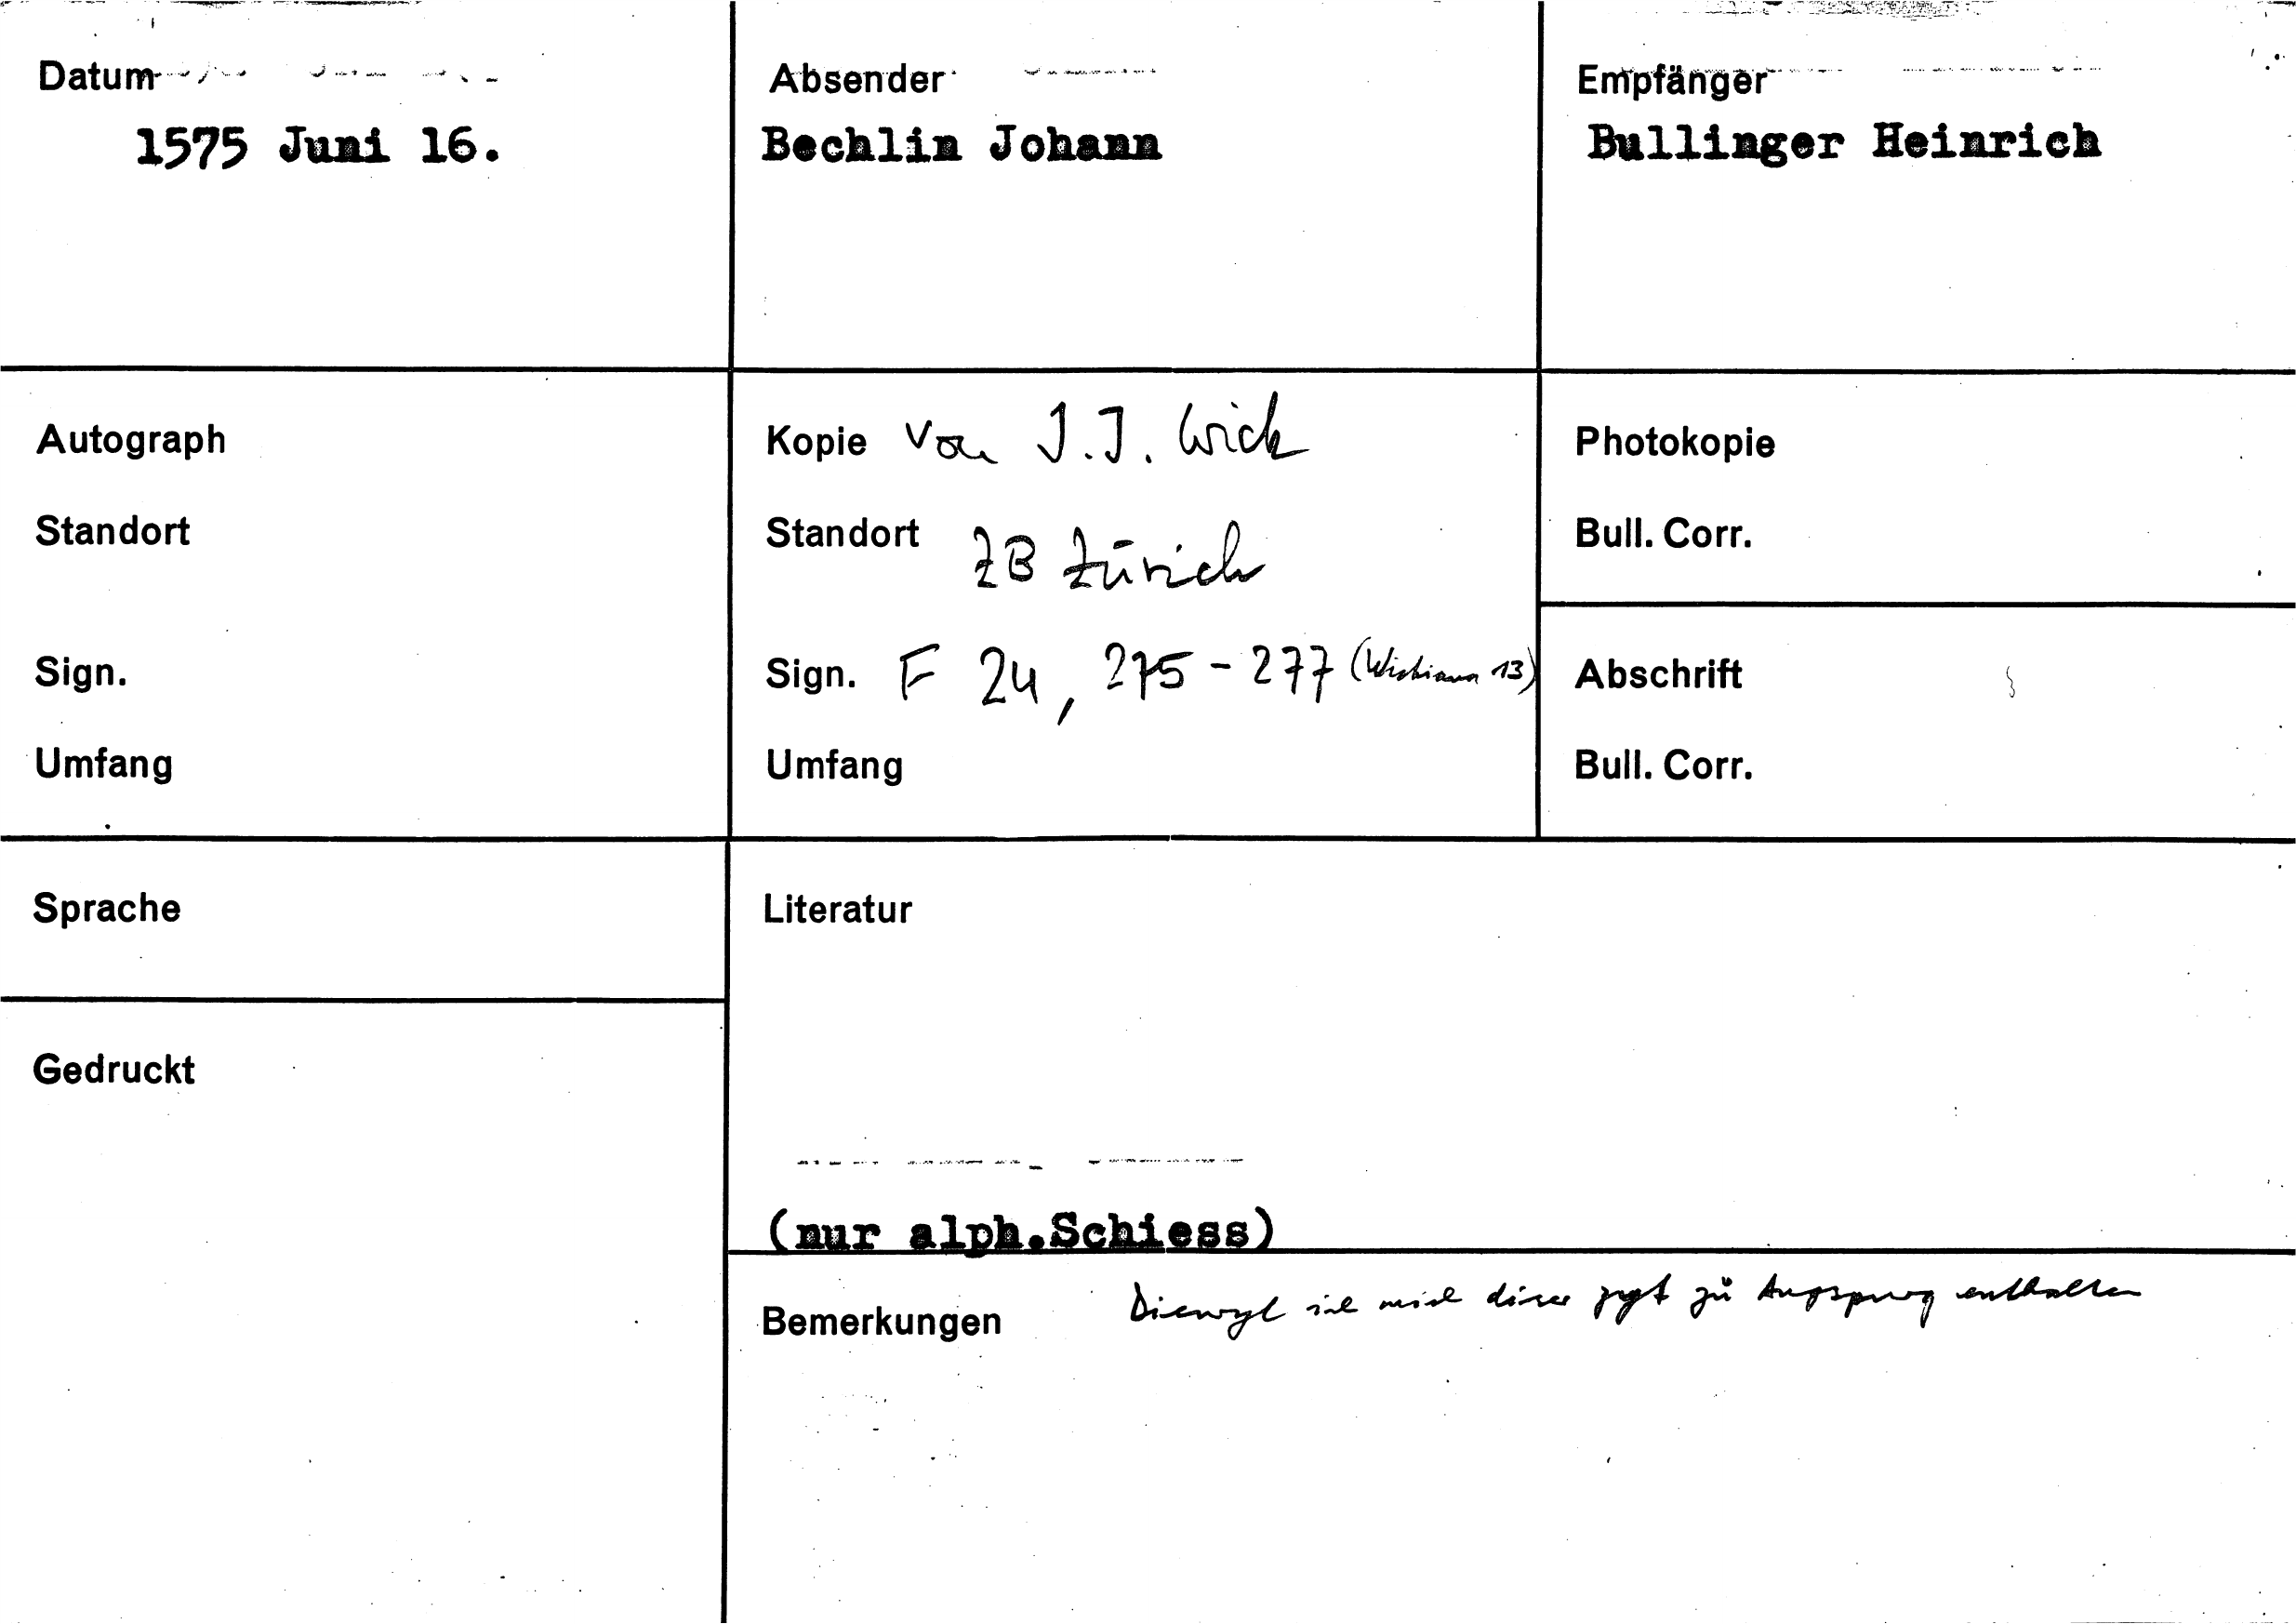 Datum
1575 Juni 16.
Absender
Bechlin Johann
Empfänger
Bullinger Heinrich
Autograph
Standort
Sign.
Umfang
Kopie von J.J. Wick
Standort ZB Zürich
Sign. F 24, 275-277 (Wickiana 13)
Umfang
Photokopie
Bull. Corr.
Abschrift
Bull. Corr.
Sprache
Gedruckt
Literatur
(nur alph.Schiess)
Bemerkungen Diewyl ich mich diser zyt zů Augspurg enthalten